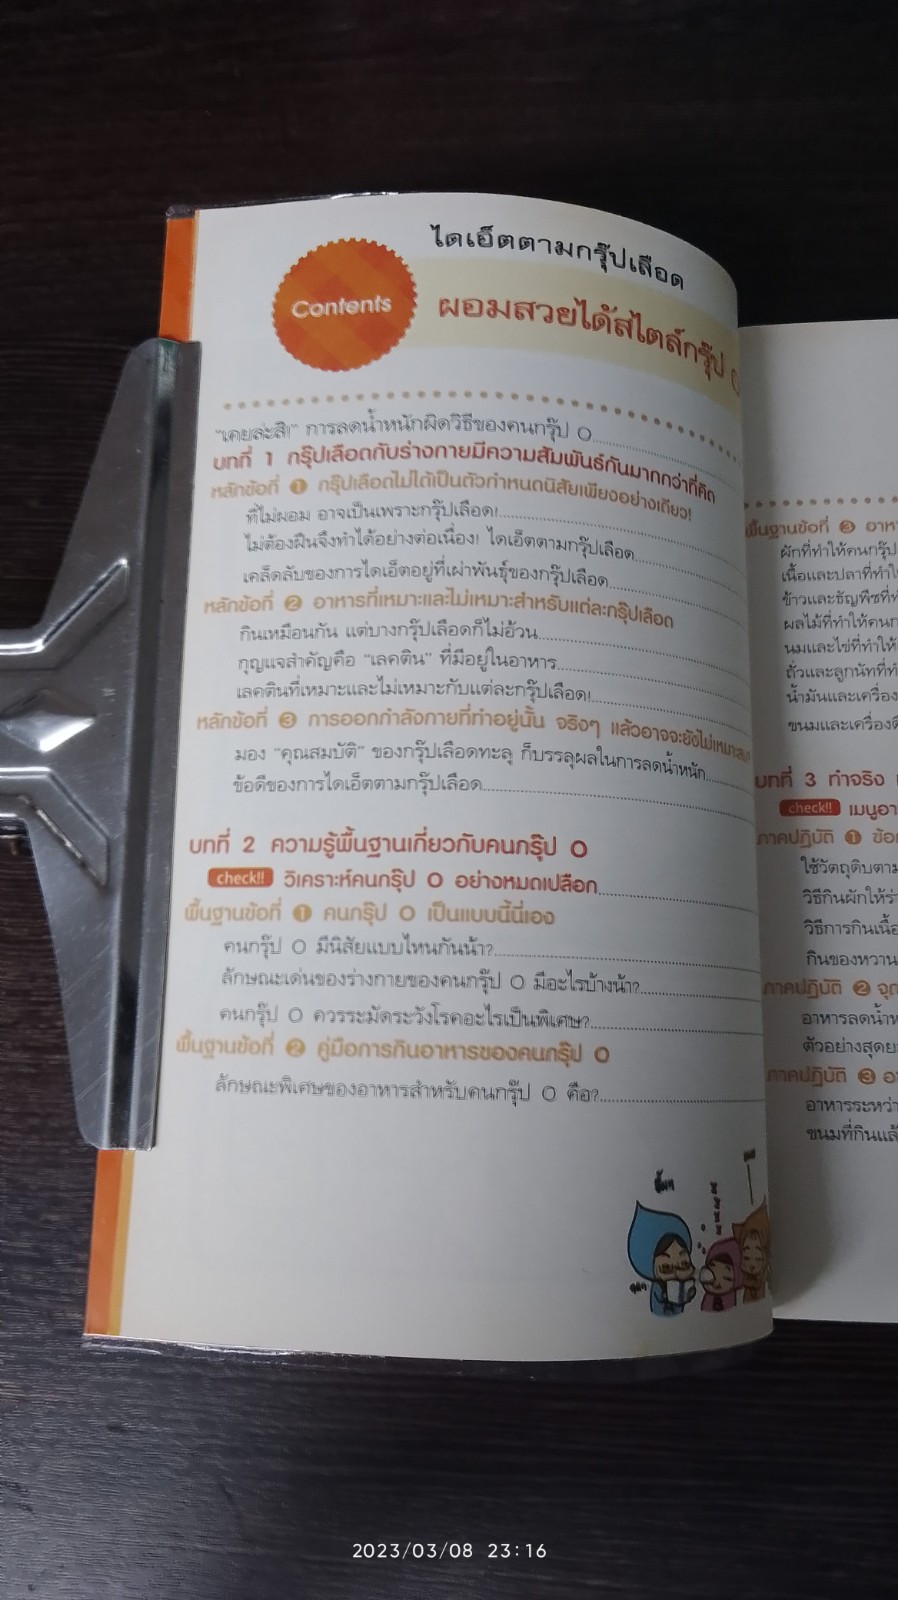 ไดเอ็ตตามกรุ๊ปเลือด
Contents
ผอมสวยได้สไตล์กรุ๊ป O
"เคยล่ะสิ!" การลดน้ำหนักผิดวิธีของคนกรุ๊ป O
บทที่ 1 กรุ๊ปเลือดกับร่างกายมีความสัมพันธ์กันมากกว่าที่คิด
หลักข้อที่ 1 กรุ๊ปเลือดไม่ได้เป็นตัวกำหนดนิสัยเพียงอย่างเดียว!
ที่ไม่ผอม อาจเป็นเพราะกรุ๊ปเลือด!
ไม่ต้องฝืนจึงทำได้อย่างต่อเนื่อง! ไดเอ็ตตามกรุ๊ปเลือด
เคล็ดลับของการไดเอ็ตอยู่ที่เผ่าพันธุ์ของกรุ๊ปเลือด
หลักข้อที่ 2 อาหารที่เหมาะและไม่เหมาะสำหรับแต่ละกรุ๊ปเลือด
กินเหมือนกัน แต่บางกรุ๊ปเลือดก็ไม่อ้วน
กุญแจสำคัญคือ "เลคติน" ที่มีอยู่ในอาหาร
เลคตินที่เหมาะและไม่เหมาะกับแต่ละกรุ๊ปเลือด!
หลักข้อที่ 3 การออกกำลังกายที่ทำอยู่นั้น จริงๆ แล้วอาจจะยังไม่เหมาะสม?
มอง "คุณสมบัติ" ของกรุ๊ปเลือดทะลุ ก็บรรลุผลในการลดน้ำหนัก
ข้อดีของการไดเอ็ตตามกรุ๊ปเลือด
บทที่ 2 ความรู้พื้นฐานเกี่ยวกับคนกรุ๊ป O
check!! วิเคราะห์คนกรุ๊ป O อย่างหมดเปลือก
พื้นฐานข้อที่ 1 คนกรุ๊ป O เป็นแบบนี้นี่เอง
คนกรุ๊ป O มีนิสัยแบบไหนกันน้า?
ลักษณะเด่นของร่างกายของคนกรุ๊ป O มีอะไรบ้างน้า?
คนกรุ๊ป O ควรระมัดระวังโรคอะไรเป็นพิเศษ?
พื้นฐานข้อที่ 2 คู่มือการกินอาหารของคนกรุ๊ป O
ลักษณะพิเศษของอาหารสำหรับคนกรุ๊ป O คือ?
พื้นฐานข้อที่ 3 อาหา
ผักที่ทำให้คนกรุ๊ป
เนื้อและปลาที่ทำใ
ข้าวและธัญพืชที่ท
ผลไม้ที่ทำให้คนก
นมและไข่ที่ทำให้
ถั่วและลูกนัทที่ทำ
น้ำมันและเครื่อง
ขนมและเครื่องดื
บทที่ 3 ทำจริง
check!! เมนูอา
ภาคปฏิบัติ 1 ข้อ
ใช้วัตถุดิบตาม
วิธีกินผักให้ร่า
วิธีการกินเนื้อ
กินของหวาน
ภาคปฏิบัติ 2 จุด
อาหารลดน้ำห
ตัวอย่างสุดย
ภาคปฏิบัติ 3 อ
อาหารระหว่า
ขนมที่กินแล้
2023/03/08 23:16